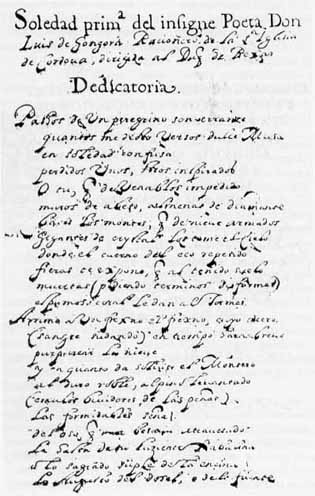 Soledad primª del insigne Poeta, Don
Luis de Gongora Racionero de la Sª Yglesia
de Cordoua, dirigida al Duq̃ de Bexar
Dedicatoria.
Passos de Vn peregrino son errante
quantos me dicto Versos dulce Musa
en soledad confusa
perdidos Vnos, otros inspirados
O tu, q̃ de Venablos impedido
muros de abeto, almenas de diamante
bates los montes, q̃ de nieue armados
Gigantes de cristal los teme el Cielo
donde el cuerno del eco repetido
fieras te expone, q̃ al teñido suelo
muertas (pidiendo terminos disformes)
espumoso coral le dan a Tormes
Arrima a Vn frexno el frexno, cuyo azero
(sangre sudando) en tiempo hara breue
purpurear la nieue
y en quanto da el Montero
al duro roble, al pino leuantado
(emulos de las peñas)
Las formidables señas
del oso, q̃ aun besaua atrauesado
la de tu luziente
o lo sagrado supla de la encina
lo Augusto del dosel, o de la fuente